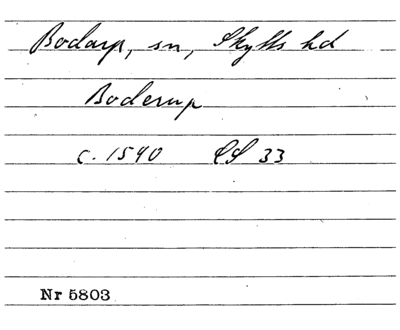 Bodarp, sn, Skytts hd
Boderup
c. 1540 LS 33
Nr 5803